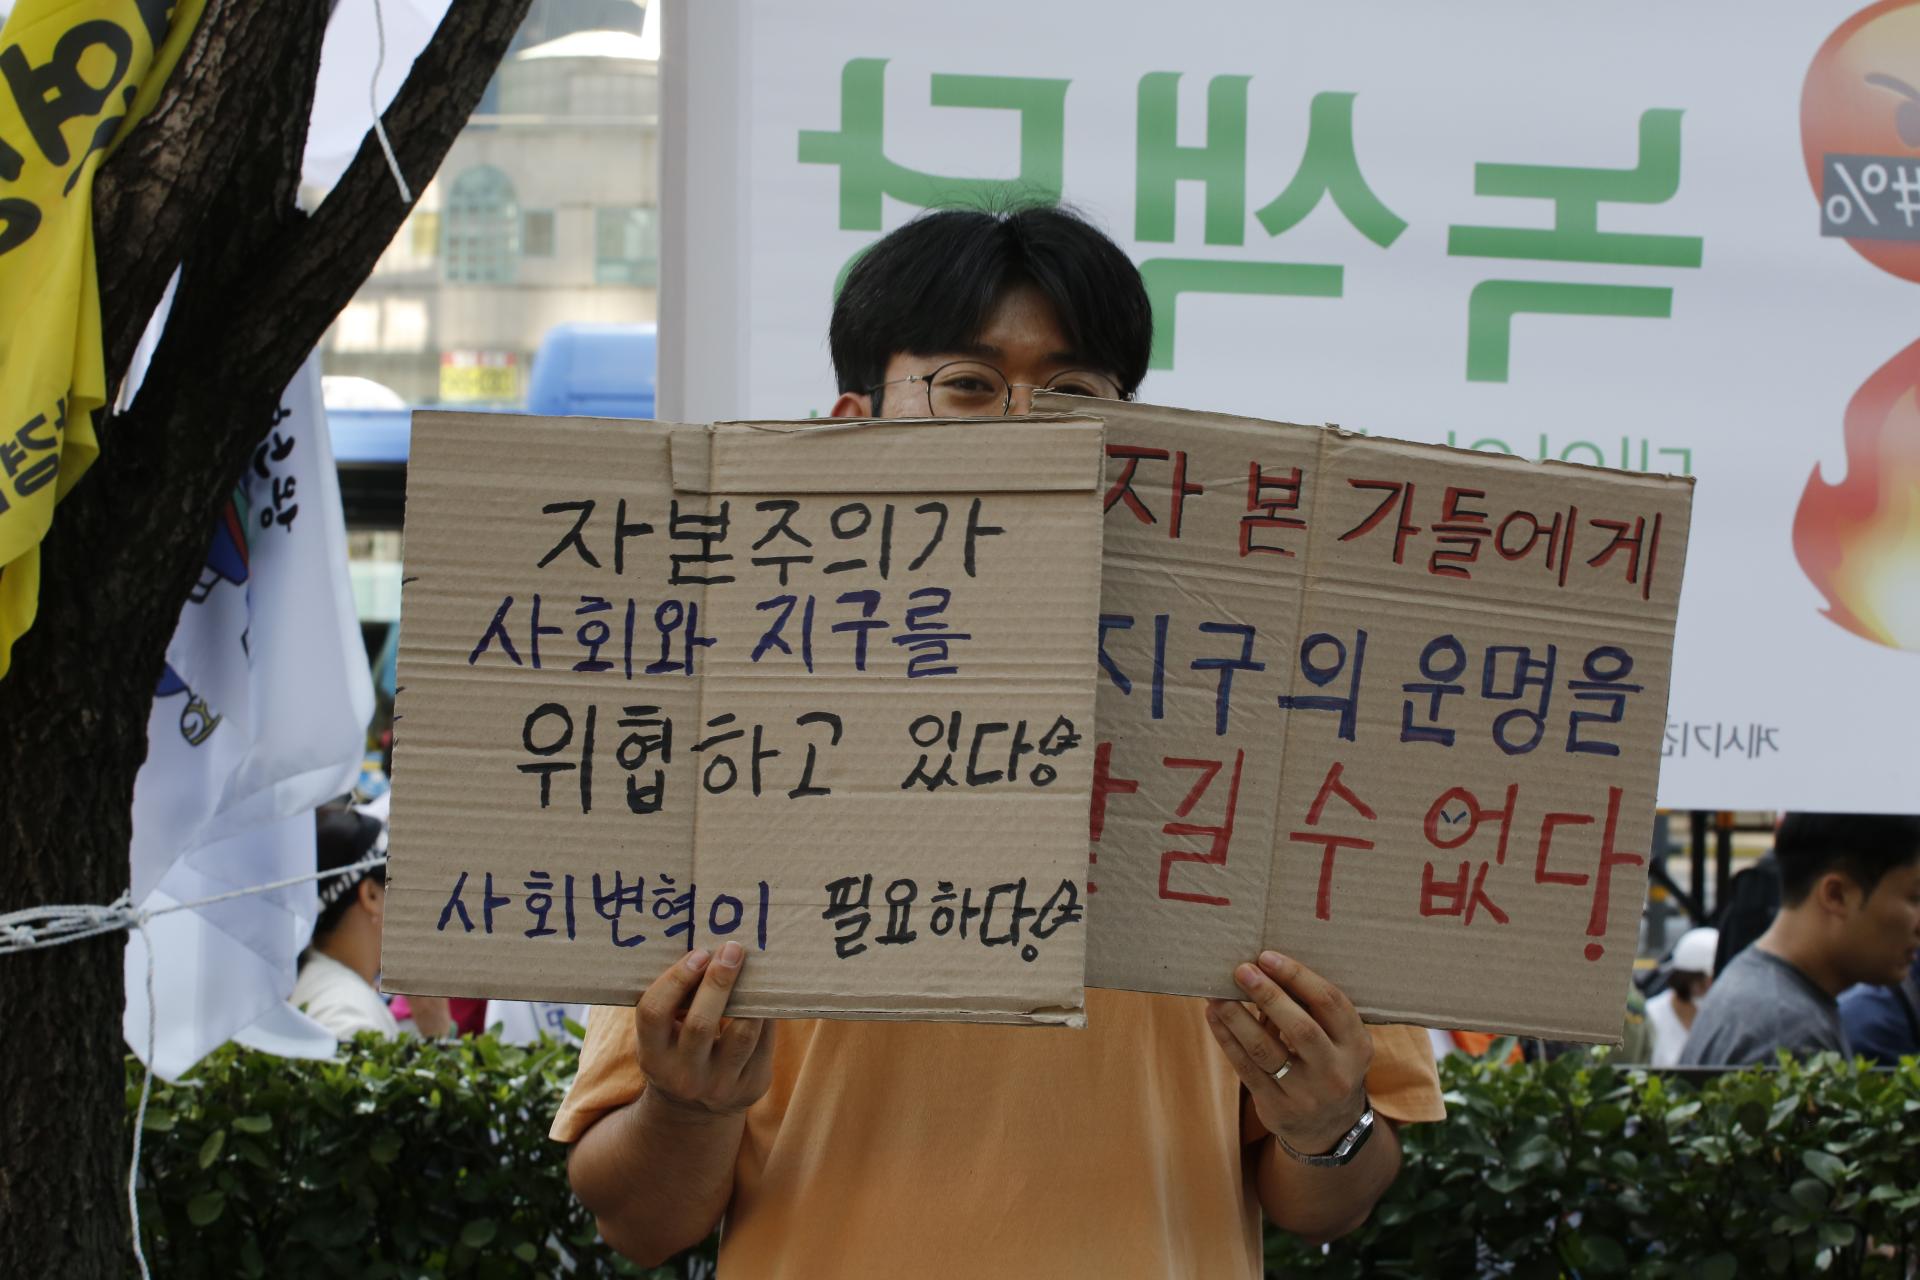 녹색당
#%
자본주의가
사회와 지구를
위협하고 있다!
사회변혁이 필요하다!
자본가들에게
지구의 운명을
맡길 수 없다!